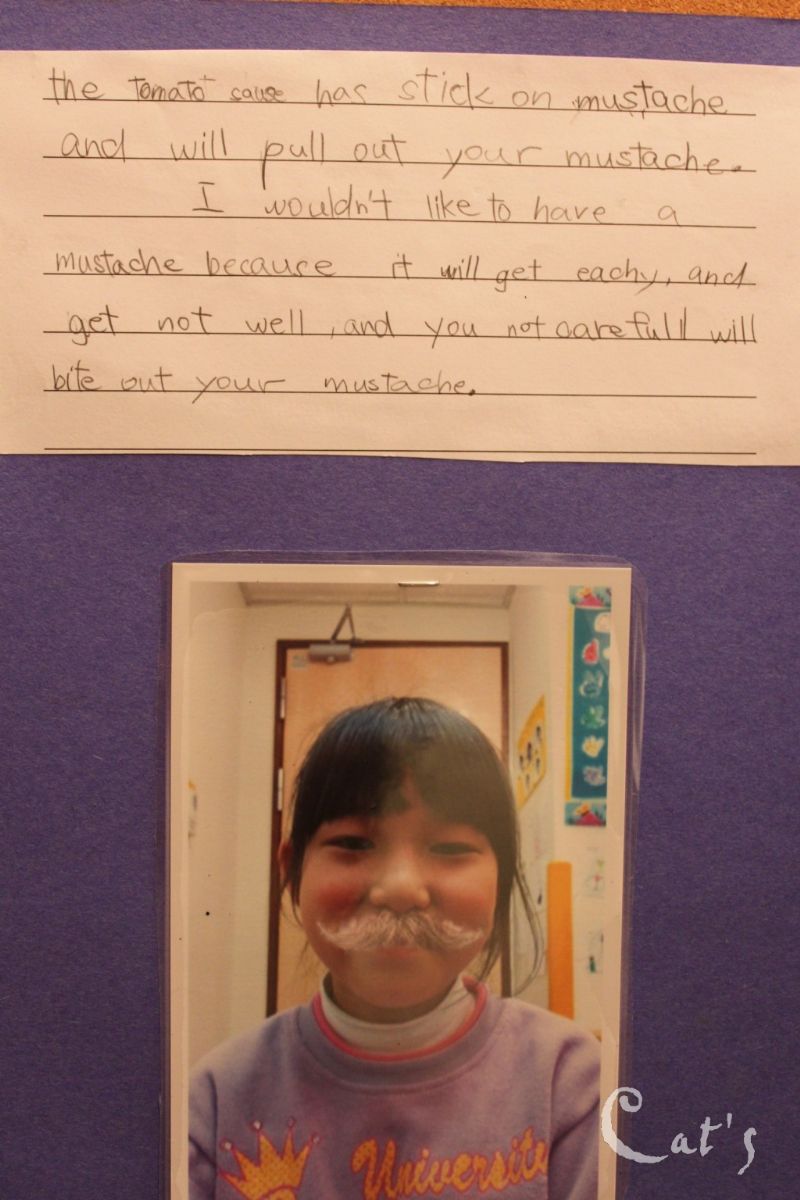 the tomato sause has stick on mustache
and will pull out your mustache.
I wouldn't like to have a
mustache because it will get eachy, and
get not well, and you not carefull will
bite out your mustache.
University
Cat's